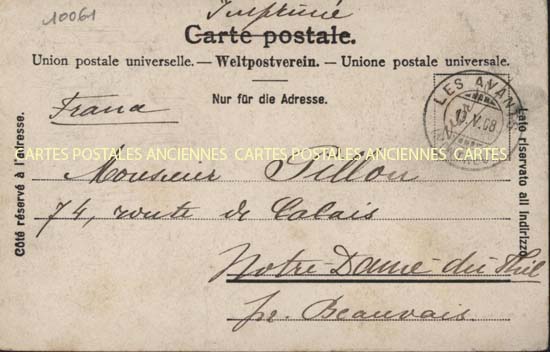 10061
Imprimé
Carte postale.
Union postale universelle. — Weltpostverein. — Unione postale universale.
Nur für die Adresse.
France
LES AVANTS
X.08
Côté réservé à l'adresse.
lato riservato all indirizzo
CARTES POSTALES ANCIENNES CARTES POSTALES ANCIENNES CARTES POSTALES ANCIENNES
Monsieur Pillon
74, route de Calais
Notre-Dame-du-Thil
pr. Beauvais